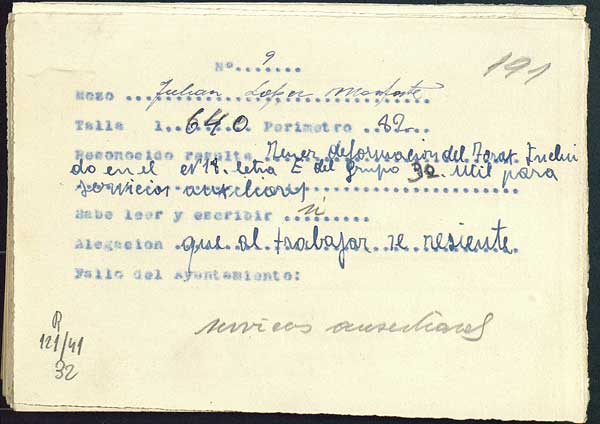 Nº 9
191
Mozo Julian Lopez
Talla 1.640 Perimetro 82
Reconocido resulta Tener deformacion del Torax Inclui
do en el nº 18. letra E del Grupo 3º. util para
servicios auxiliares
Sabe leer y escribir si
Alegacion que al trabajar se resiente
Fallo del Ayuntamiento:
servicios auxiliares
P
121/41
32